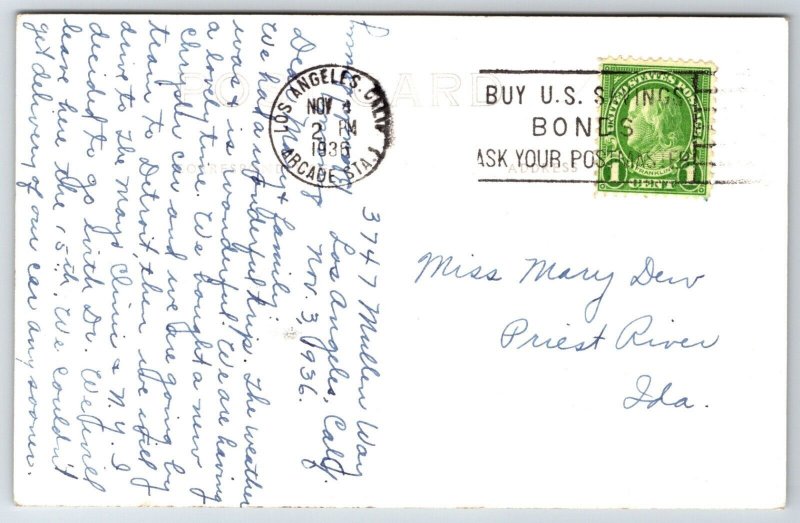 3747 Mullen Way
Los Angeles, Calif.
Nov. 3, 1936.
Dear Mary & family;
We had a wonderful trip. The weather
was & is wonderful. We are having
a lovely time. We bought a new
chrysler car and we are going by
train to Detroit, then we will
drive to the Mayo Clinic & N.Y. I
decided to go with Dr. We will
leave here the 15th. We couldn't
get delivery of our car any sooner.
POST CARD
CORRESPONDENCE
ADDRESS
LOS ANGELES, CALIF.
NOV 4
2 PM
1936
ARCADE STA. 1
BUY U.S. SAVINGS
BONDS
ASK YOUR POSTMASTER
UNITED STATES POSTAGE
FRANKLIN
1 CENT 1
Miss Mary Dew
Priest River
Ida.